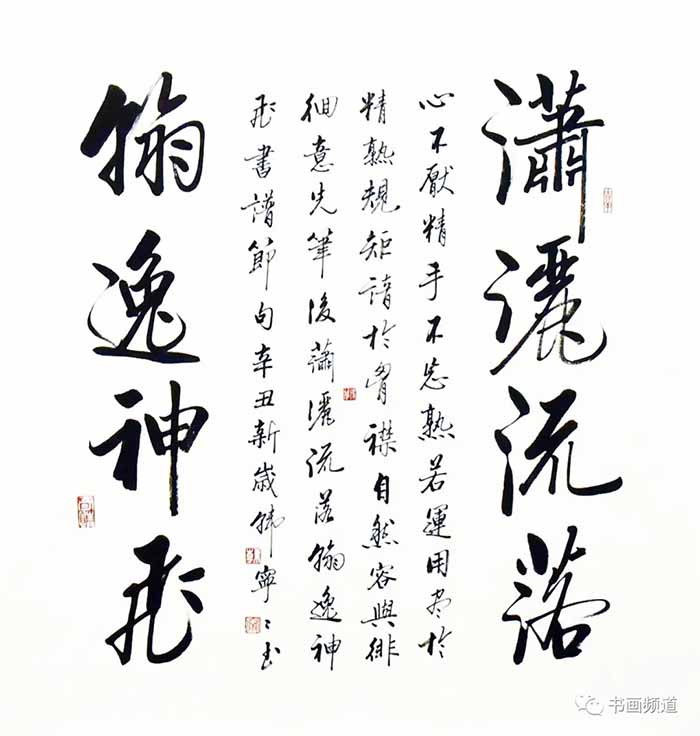 瀟灑流落
心不厭精手不忘熟若運用尽於
精熟規矩諳於胷襟自然容與徘
徊意先筆後蕭灑流落翰逸神
飛書譜節句辛丑新歲寧〻书
翰逸神飛
书画频道